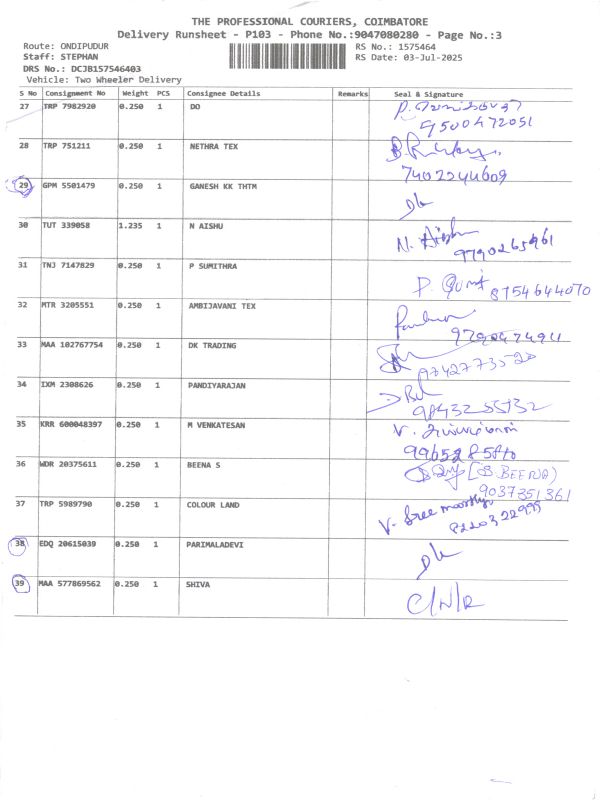 THE PROFESSIONAL COURIERS, COIMBATORE
Delivery Runsheet - P103 - Phone No.:9047080280 - Page No.:3
Route: ONDIPUDUR RS No.: 1575464
Staff: STEPHAN RS Date: 03-Jul-2025
DRS No.: DCJB157546403
Vehicle: Two Wheeler Delivery
S No Consignment No Weight PCS Consignee Details Remarks Seal & Signature
27 TRP 7982920 0.250 1 DO
9500472051
28 TRP 751211 0.250 1 NETHRA TEX
7402244609
29 GPM 5501479 0.250 1 GANESH KK THTM
30 TUT 339058 1.235 1 N AISHU N.
9790265961
31 TNJ 7147829 0.250 1 P SUMITHRA P.
8754644070
32 MTR 3205551 0.250 1 AMBIJAVANI TEX
33 MAA 102767754 0.250 1 DK TRADING
9742773520
34 IXM 2308626 0.250 1 PANDIYARAJAN
35 KRR 600048397 0.250 1 M VENKATESAN V.
36 WDR 20375611 0.250 1 BEENA S (S.BEENA)
9037351361
37 TRP 5989790 0.250 1 COLOUR LAND V. Sree moorthy
8220322995
38 EDQ 20615039 0.250 1 PARIMALADEVI
39 MAA 577869562 0.250 1 SHIVA C/N/R